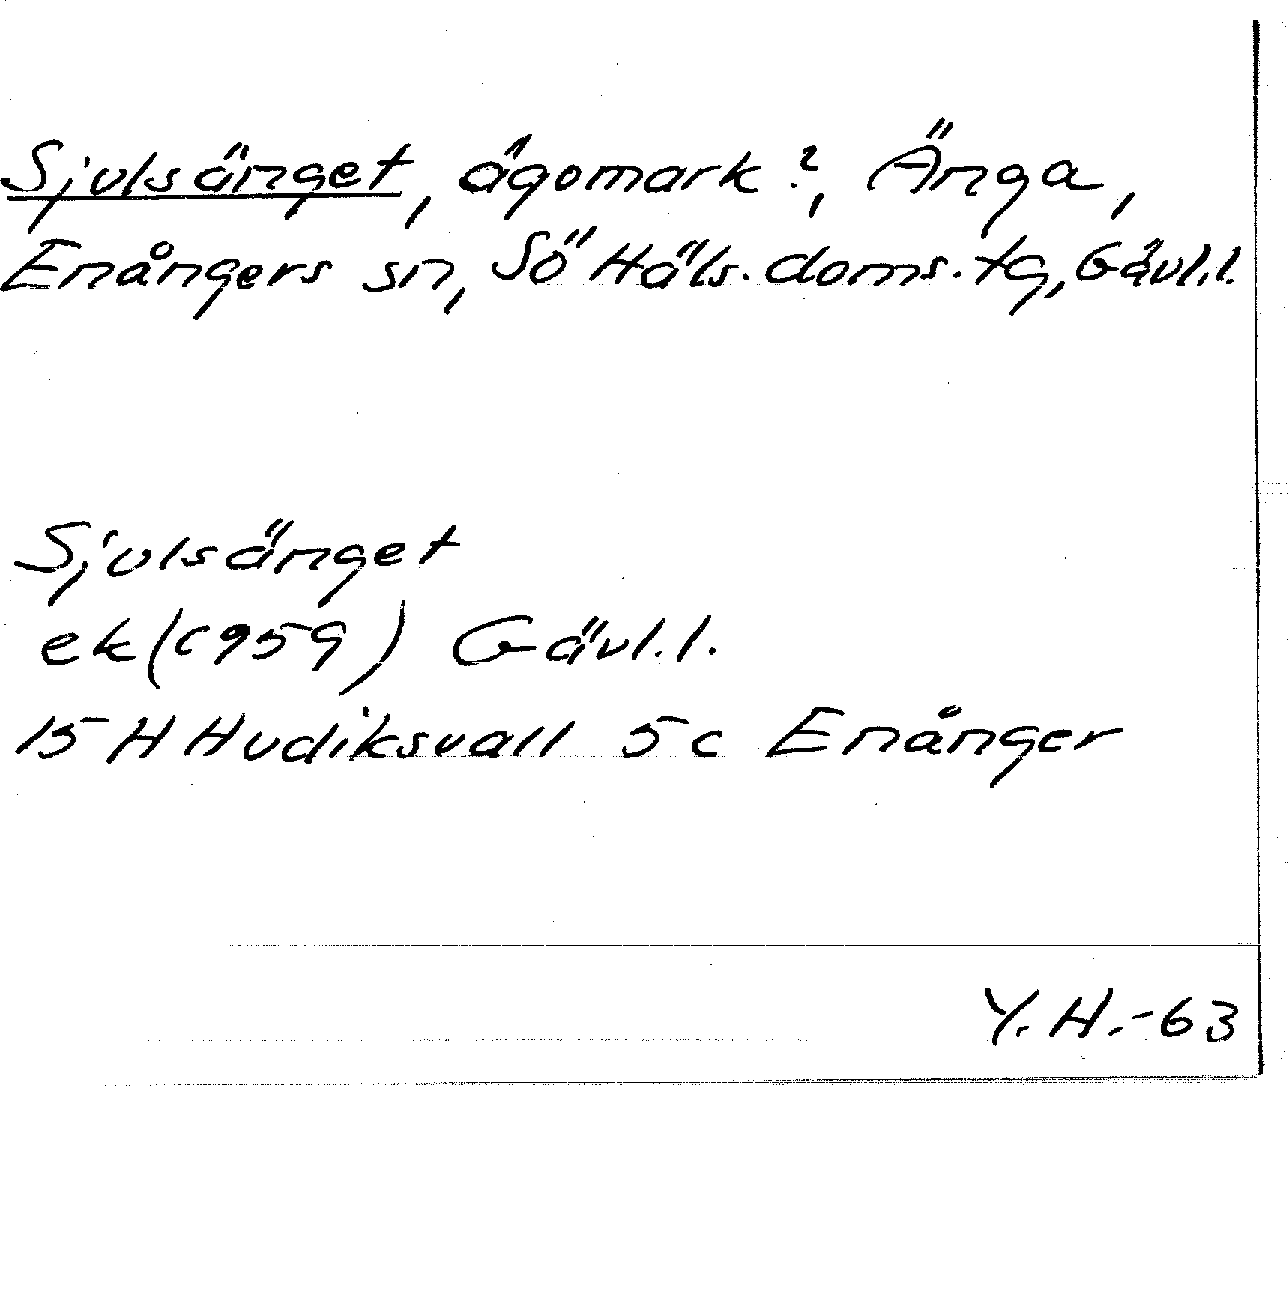 Sjulsänget, ägomark?, Änga,
Enångers sn, Sö Häls. doms. tg, Gävl.l.
Sjulsänget
ek (C959) Gävl.l.
15 H Hudiksvall 5 c Enånger
Y.H.-63